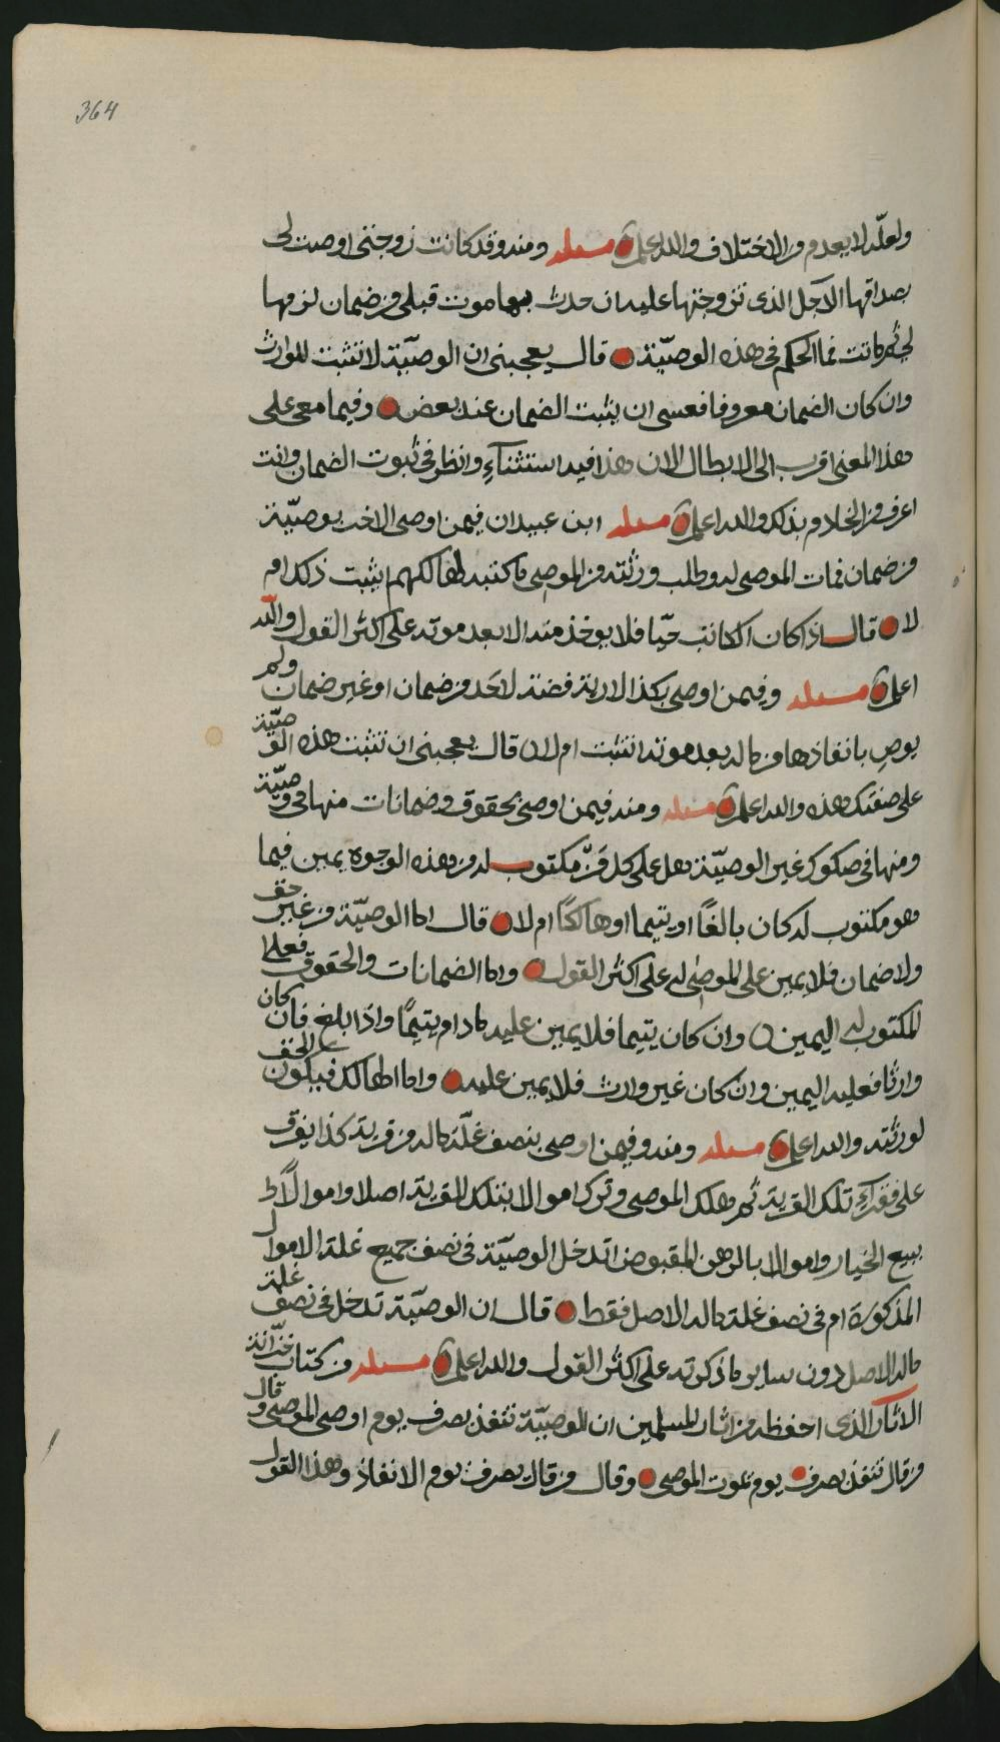 364
ولعلّه لا يعدم من الاختلاف والله اعلم مسئلة ومنه وقد كانت زوجتي اوصت لي
بصداقها الآجل الذي تزوجتها عليه ان حدث بها موت قبلي من ضمان لزمها
لي ثم ماتت فما الحكم في هذه الوصيّة قال يعجبني ان الوصيّة لا تثبت للوارث
وان كان الضمان معروفا فعسى ان يثبت الضمان عند بعض وفيما معي على
هذا المعنى اقرب الى الابطال لان هذا فيه استثناءٍ وانظر في ثبوت الضمان وانت
اعرف من الخادم بذلك والله اعلم مسئلة ابن عبيدان فيمن اوصى لاخر بوصيّة
من ضمان فمات الموصى له وطلب ورثته من الموصي ما كتبه لهالكهم ايثبت ذلك ام
لا قال اذا كان الكاتب حيّا فلا يوخذ منه الا بعد موته على اكثر القول والله
اعلم مسئلة وفيمن اوصى بكذا لارية فضة لاحد من ضمان او غير ضمان ولم
يوصِ بانفاذها من ماله بعد موته اتثبت ام لا قال يعجبني ان تثبت هذه الوصيّة
على صفتك هذه والله اعلم مسئلة ومنه فيمن اوصى بحقوق وضمانات منها في وصيّة
ومنها في صكوك غير الوصيّة هل على كل مَنْ مكتوب له من هذه الوجوه يمين فيما
هو مكتوب له كان بالغًا او يتيما او هالكًا ام لا قال اما الوصيّة من غير حق
ولا ضمان فلا يمين على الموصٰى له على اكثر القول واما الضمانات والحقوق فعلى
المكتوب له اليمين وان كان يتيما فلا يمين عليه ما دام يتيمًا واذا بلغ فان كان
وارثا فعليه اليمين وان كان غير وارث فلا يمين عليه واما الهالك فيكون الحق
لورثته والله اعلم مسئلة ومنه وفيمن اوصى بنصف غلّة ماله من قرية كذا يفرق
على فقراءِ تلك القرية ثم هلك الموصي وترك اموالا بتلك القرية اصلا واموالًا
ببيع الخيار واموالا بالرهن المقبوض اتدخل الوصيّة في نصف جميع غلة الاموال
المذكورة ام في نصف غلة ماله الاصل فقط قال ان الوصيّة تدخل في نصف غلة
ماله الاصل دون ساير ما ذكرته على اكثر القول والله اعلم مسئلة من كتاب خزانة
الاثار الذي احفظه من اثار المسلمين ان الوصيّة تنفذ بصرف يوم اوصى الموصي وقال
من قال تنفذ بصرف يوم يموت الموصي وقال من قال بصرف يوم الانفاذ وهذا القول